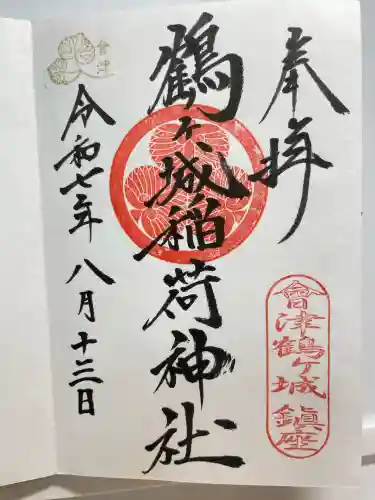 奉拝
會津鶴ヶ城鎮座
鶴ヶ城稲荷神社
會津
令和七年八月十三日